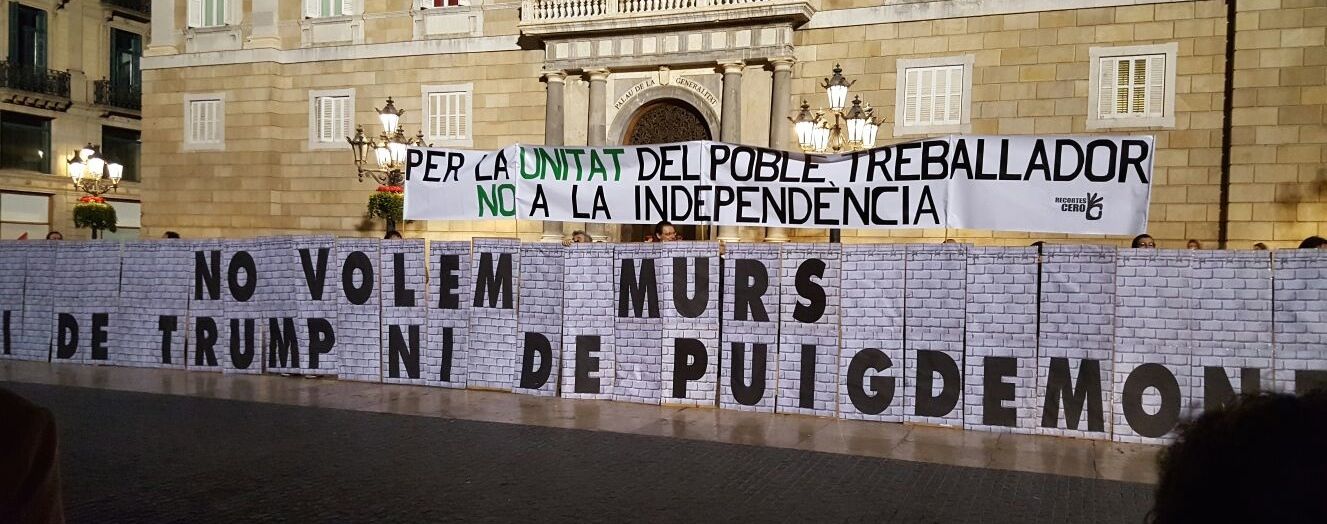 PALAU DE LA GENERALITAT
PER LA UNITAT DEL POBLE TREBALLADOR
NO A LA INDEPENDÈNCIA
RECORTES
CERO
NO VOLEM MURS
I DE TRUMP NI DE PUIGDEMON